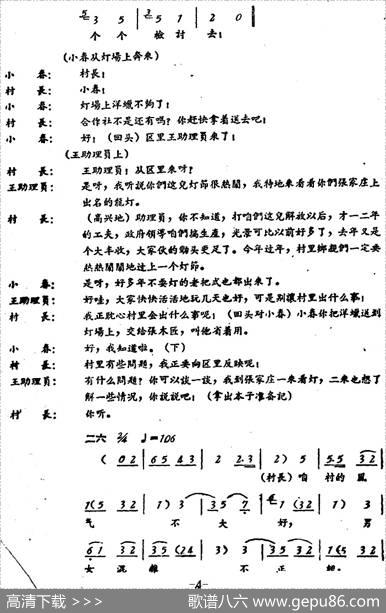 5 3 5 | 3 5 1 | 2 0 |
个 个 檢 討 去！
(小春从灯場上奔来)
小 春： 村長！
村 長： 小春！
小 春： 灯場上洋蠟不夠了！
村 長： 合作社不是还有嗎？你赶快拿着送去吧！
小 春： 好！(回头)区里王助理員来了！
(王助理員上)
村 長： 王助理員！从区里来呀？
王助理員： 是呀，我听說你們这兒灯节很热鬧，我特地来看看你們張家庄上
出名的龍灯。
村 長： (高兴地)助理員，你不知道，打咱們这兒解放以后，才一二年
的工夫，政府領导咱們搞生產，光景可比以前好多了，去年又是
个大丰收，大家伙的勁头更足了。今年过年，村里鄉親們一定要
热热鬧鬧地过上一个灯节。
小 春： 是呀，好多年不耍灯的老把式也都出来了。
王助理員： 好哇，大家快快活活地玩几天也好，可是别讓村里出什么事！
村 長： 我正耽心村里会出什么事呢！(回头对小春)小春你把洋蠟送到
灯場上，交给張木匠，叫他省着用。
小 春： 好，我知道啦。(下)
村 長： 村里有些問題，我正要向区里反映呢！
王助理員： 有什么問題？你可以談一談，我到張家庄一来看灯，二来也想了
解一些情况，你說說吧！(拿出本子准备記)
村 長： 你听。
二六 2/4 ♩=106
( 0 2 | 6 5 4 3 | 2 2·3 | 2 ) 5 | 5·5 3 2 |
(村長)咱 村的 風
1(5 3 2 | 1 ) 3 | 3 5 7 | 1 (3 2 | 1 ) 3 |
气 不 大 好， 男
6 1 3 2 | 3 5 (2 4 | 3 ) 3 | 3 5 3 2 | 1(5 3 2
女 混 雜 不 正 經.
-4-
高清下载 >>>
歌谱八六 www.gepu86.com